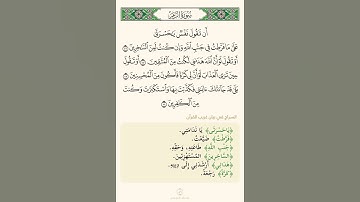 سورة الزمر
أَن تَقُولَ نَفْسٌ يَٰحَسْرَتَىٰ
عَلَىٰ مَا فَرَّطتُ فِي جَنۢبِ ٱللَّهِ وَإِن كُنتُ لَمِنَ ٱلسَّٰخِرِينَ ٥٦
أَوْ تَقُولَ لَوْ أَنَّ ٱللَّهَ هَدَىٰنِي لَكُنتُ مِنَ ٱلْمُتَّقِينَ ٥٧ أَوْ تَقُولَ
حِينَ تَرَى ٱلْعَذَابَ لَوْ أَنَّ لِي كَرَّةً فَأَكُونَ مِنَ ٱلْمُحْسِنِينَ ٥٨
بَلَىٰ قَدْ جَآءَتْكَ ءَايَٰتِي فَكَذَّبْتَ بِهَا وَٱسْتَكْبَرْتَ وَكُنتَ
مِنَ ٱلْكَٰفِرِينَ ٥٩
السراج في بيان غريب القرآن
﴿يَاحَسْرَتَى﴾ يَا نَدَامَتِي.
﴿فَرَّطْتُ﴾ ضَيَّعْتُ.
﴿جَنْبِ اللَّهِ﴾ طَاعَتِهِ، وَحَقِّهِ.
﴿السَّاخِرِينَ﴾ الْمُسْتَهْزِئِينَ.
﴿هَدَانِي﴾ أَرْشَدَنِي إِلَى
﴿كَرَّةً﴾ رَجْعَةً.